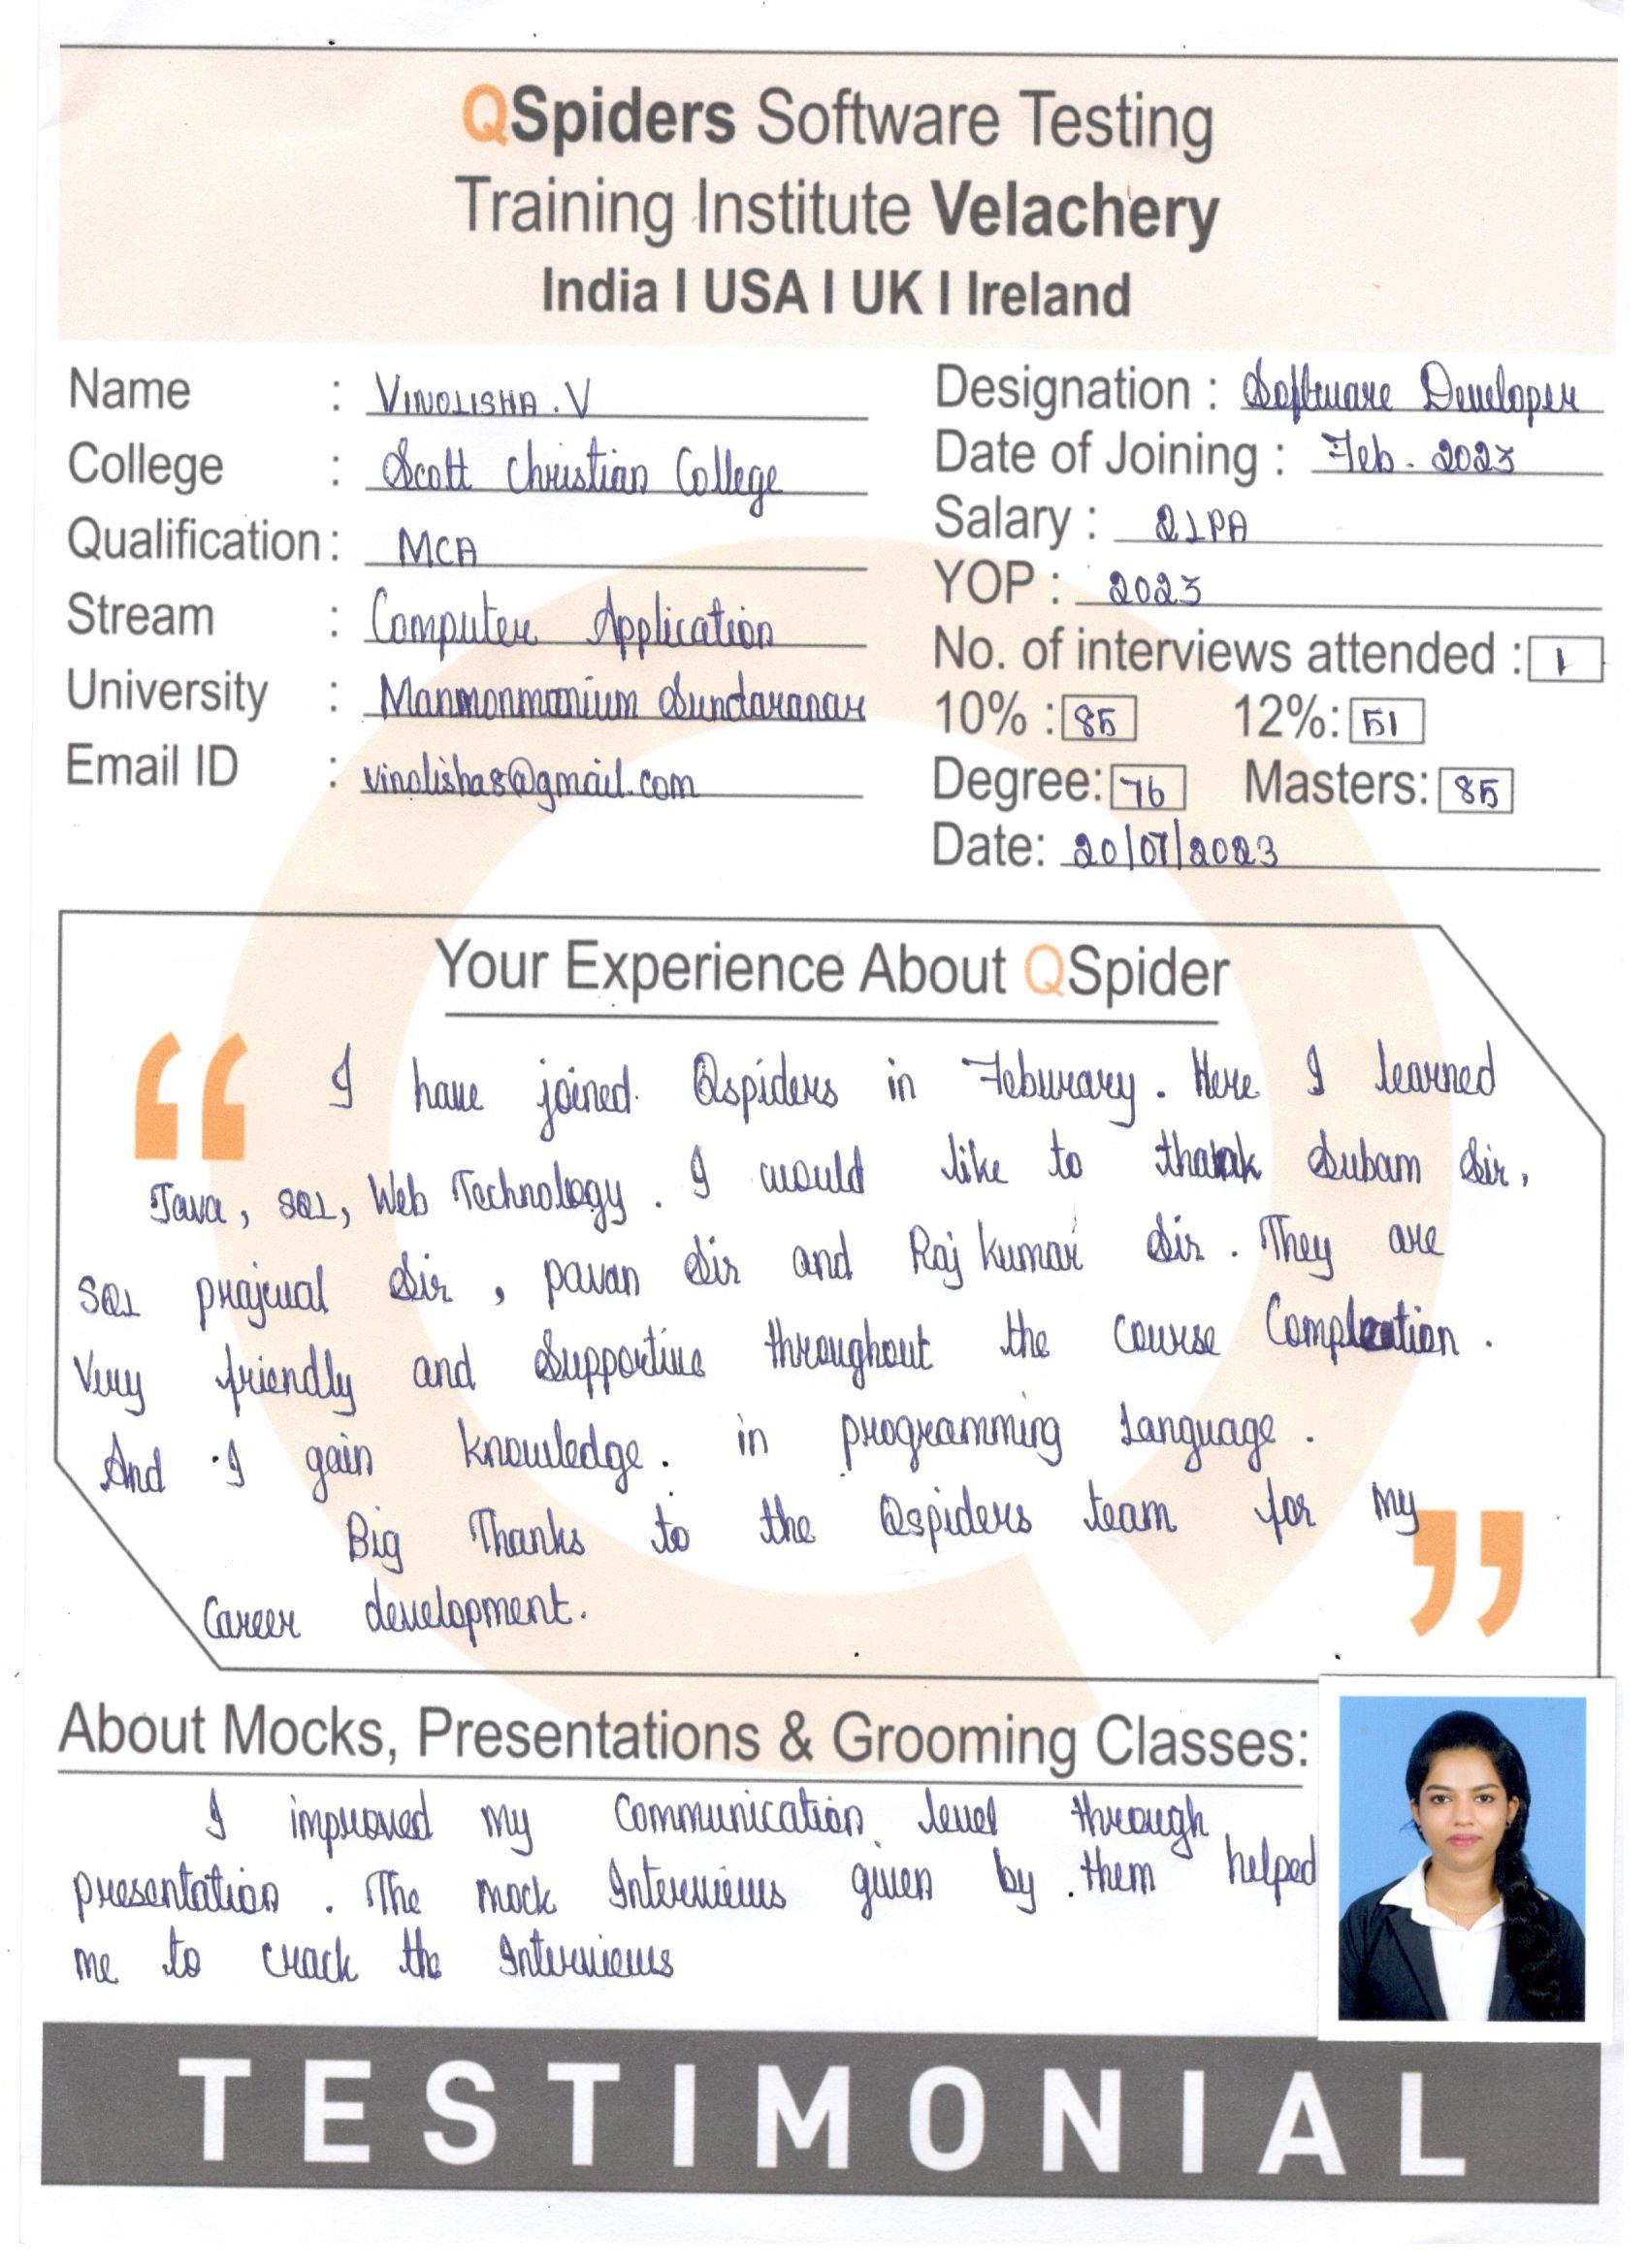 QSpiders Software Testing
Training Institute Velachery
India I USA I UK I Ireland
Name : VINOLISHA . V
College : Scott Christian College
Qualification : MCA
Stream : Computer Application
University : Manmonmanium Sundaranar
Email ID : vinolisha8@gmail.com
Designation : Software Developer
Date of Joining : Feb - 2023
Salary : 2LPA
YOP : 2023
No. of interviews attended : 1
10% : 85 12%: 51
Degree: 76 Masters: 85
Date: 20/07/2023
Your Experience About QSpider
“ I have joined Qspiders in Feburary. Here I learned
Java, SQL, Web Technology. I would like to thank Subam Sir,
SQL prajwal Sir, pavan Sir and Raj kumar Sir. They are
Very friendly and Supportive throughout the course Compleation.
And I gain knowledge. in programming Language.
Big Thanks to the Qspiders team for My
Career development. ”
About Mocks, Presentations & Grooming Classes:
I improved my Communication level through
presentation. The mock Interviews given by them helped
me to crack the Interviews
TESTIMONIAL